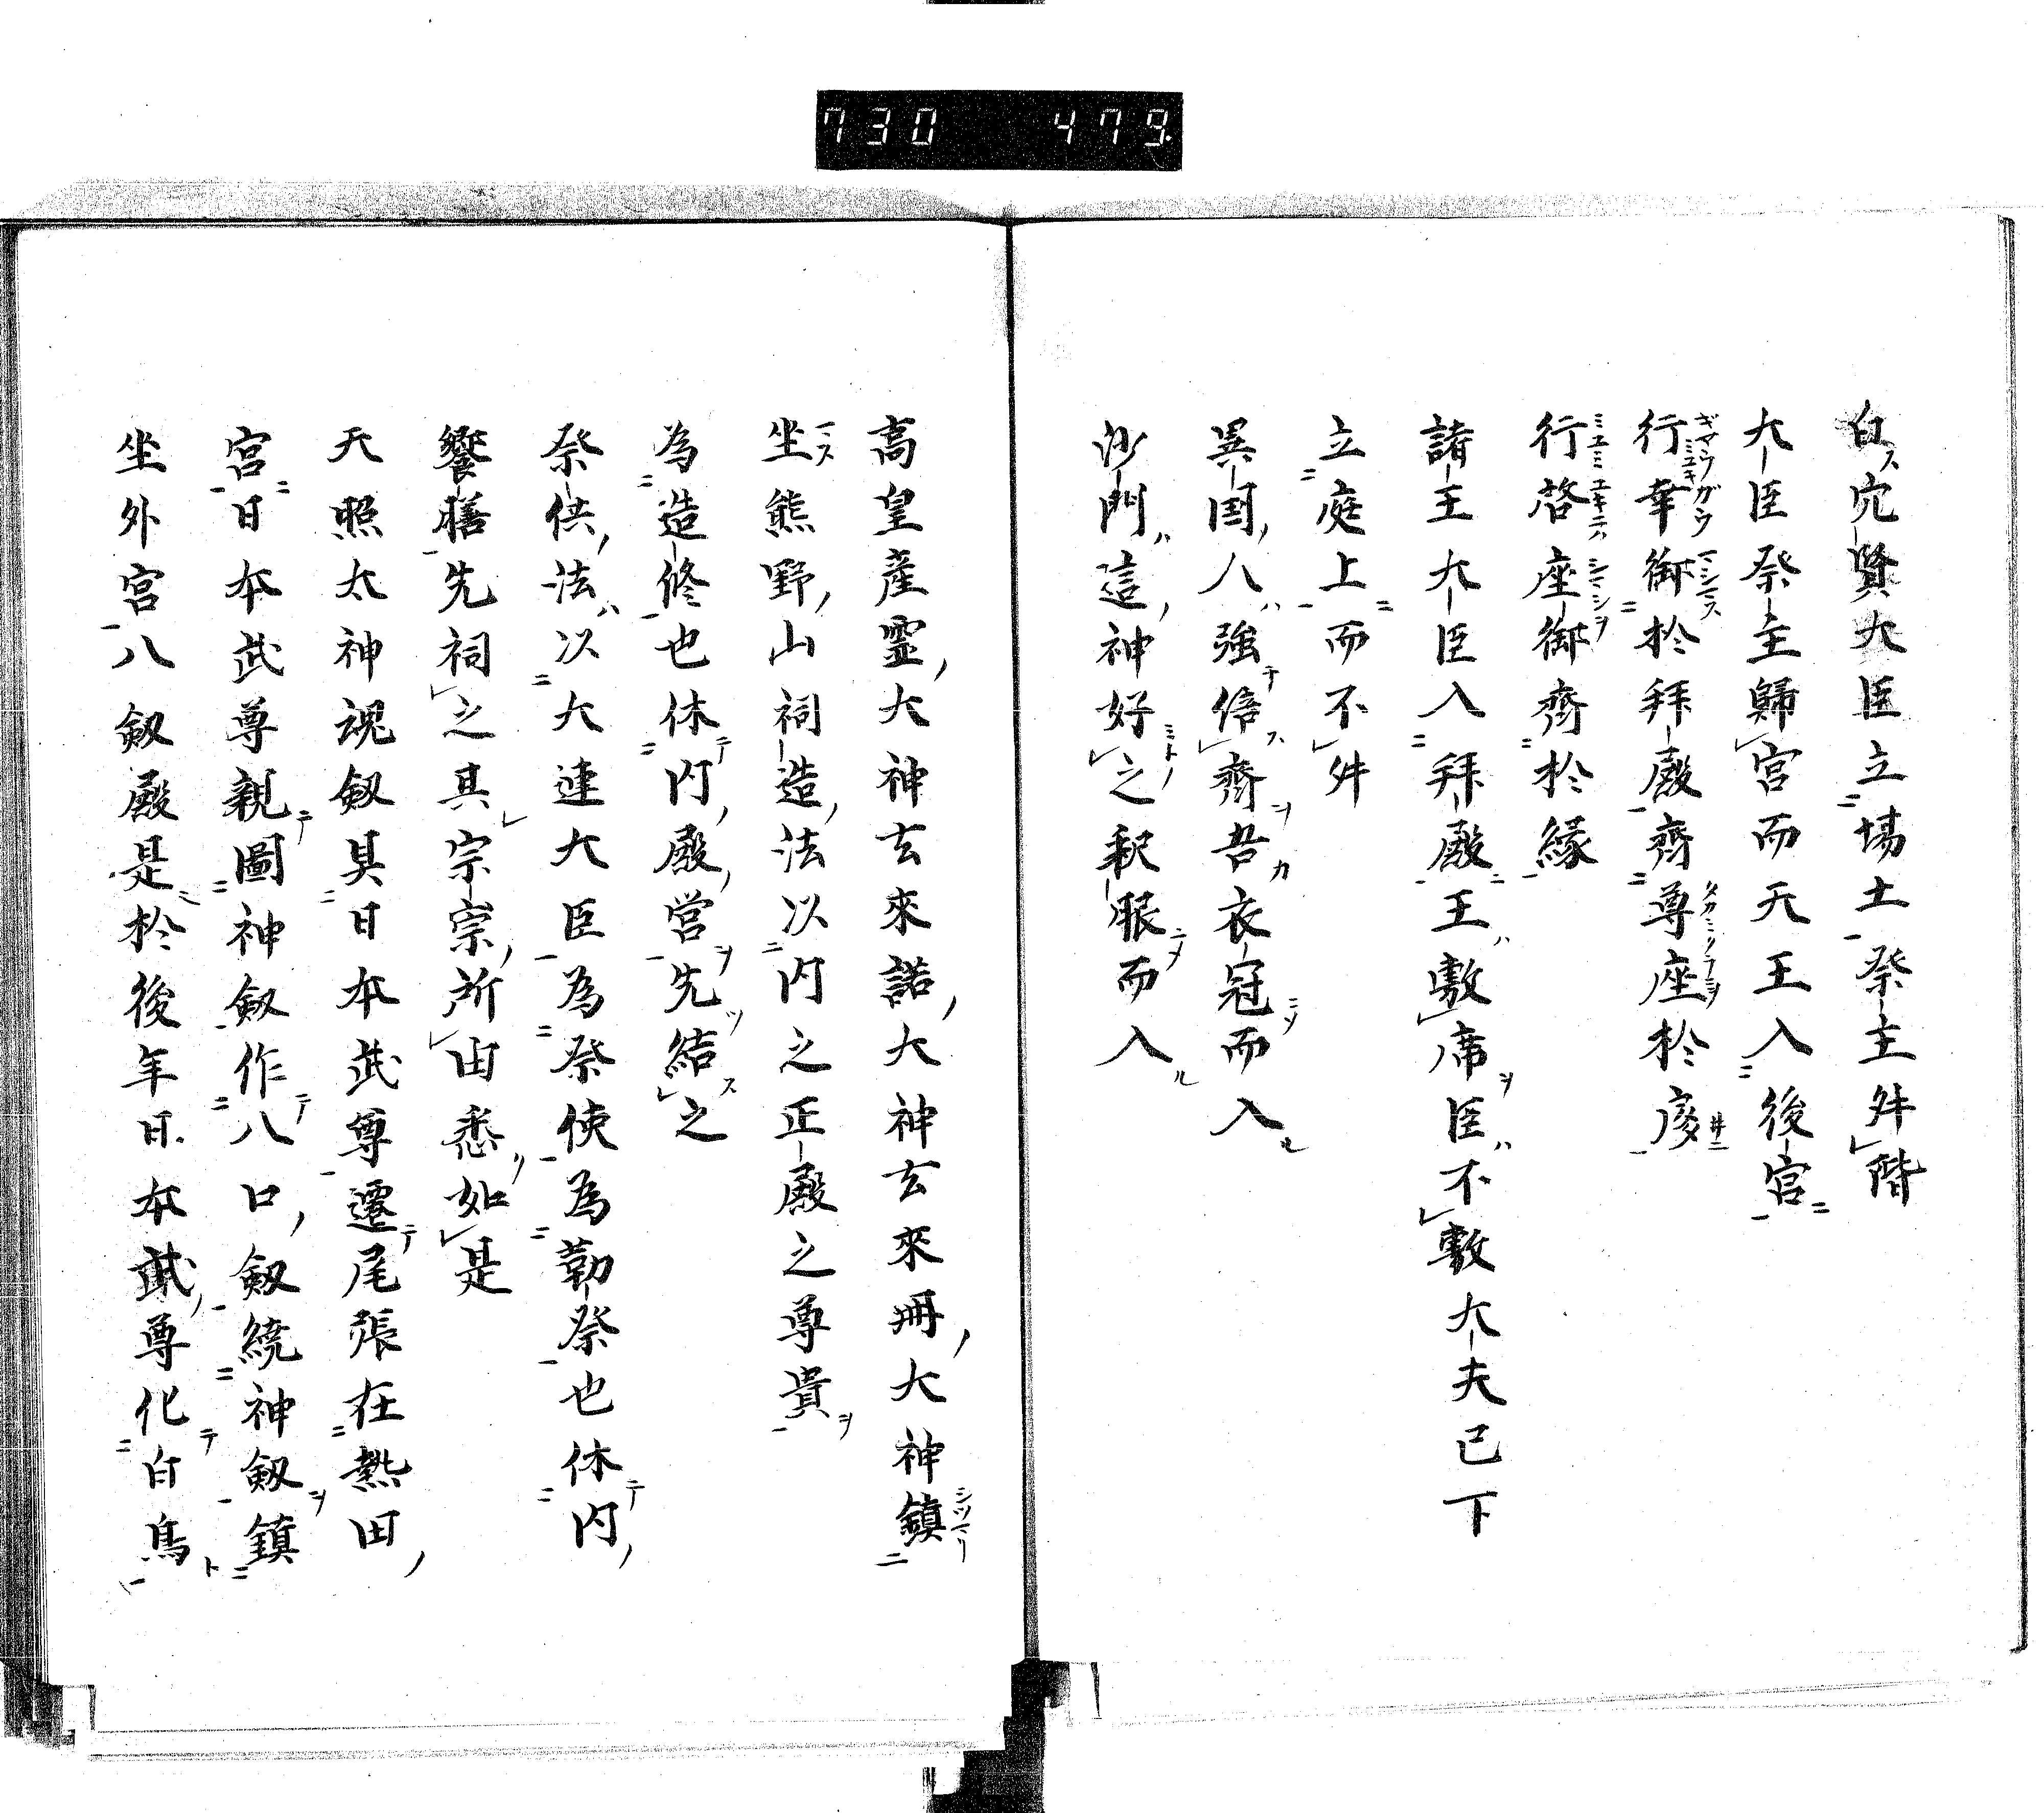 730 479
白穴賢大臣立場土祭主舛階
大臣祭主歸宮而天王入後宮
行幸御於拜殿齊尊座於
行啓座御齊於縁
諸王大臣入拜殿王敷席臣不敷大夫已下
立庭上而不舛
異国人強倍齊吾衣冠而入
沙門這神好之釈服而入
高皇産霊大神玄來諾大神玄來冊大神鎮
坐熊野山祠造法以内之正殿之尊貴
為造修也休内殿営先結之
祭供法以大連大臣為祭使為勅祭也休内
饗膳先祠之其宗宗所由悉如是
天照太神魂釼具日本武尊遷尾張在熱田
宮日本武尊親圖神釼作八口釼繞神釼鎮
坐外宮八釼殿是於後年日本武尊化白鳥